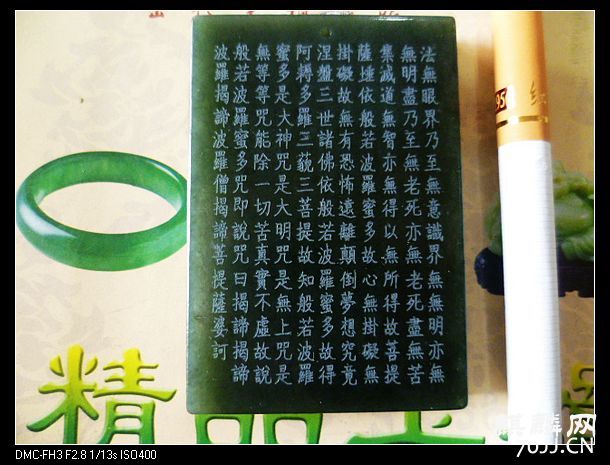 法無眼界乃至無意識界無無明亦無
無明盡乃至無老死亦無老死盡無苦
集滅道無智亦無得以無所得故菩提
薩埵依般若波羅蜜多故心無掛礙無
掛礙故無有恐怖遠離顛倒夢想究竟
涅盤三世諸佛依般若波羅蜜多故得
阿耨多羅三藐三菩提故知般若波羅
蜜多是大神咒是大明咒是無上咒是
無等等咒能除一切苦真實不虛故說
般若波羅蜜多咒即說咒曰揭諦揭諦
波羅揭諦波羅僧揭諦菩提薩婆訶
95
精品
麒麟网
76JJ.CN
DMC-FH3 F2.8 1/13s ISO400